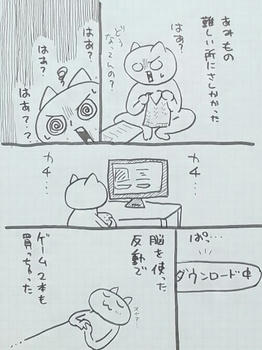 あみもの
難しい所に
さしかかった
はぁ?
どう
なってんの?
はぁ?
はぁ?
はぁ??
カチ…
カチ…
ぱぁ…
ダウンロード中
脳を使った
反動で
ゲーム2本も
買っちゃった